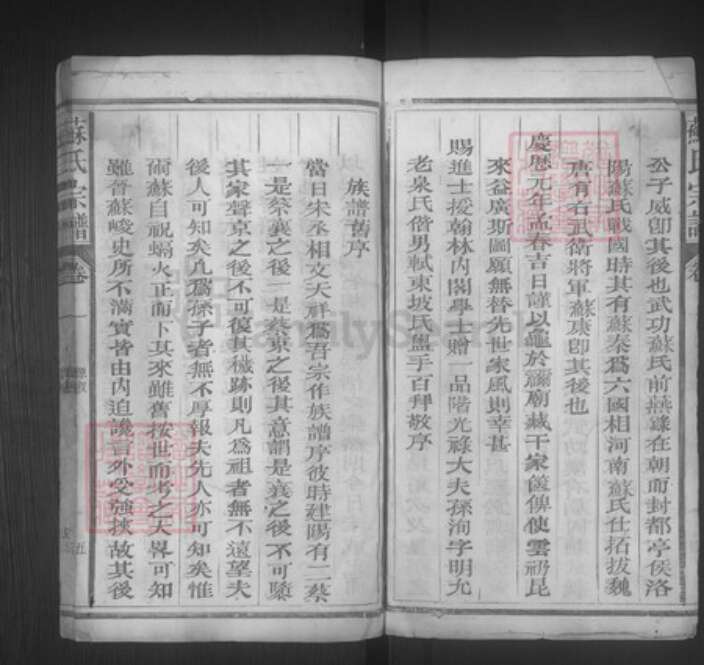 公子威卽其後也武功蘇氏前燕鑠在朝而封都亭侯洛
陽蘇氏戰國時其有蘇秦爲六國相河南蘇氏仕拓拔魏
唐有右武衛將軍蘇康卽其後也
慶歷元年孟春吉日謹以龜於禰廟藏于家篋俾使雲礽昆
來益廣斯圖願無替先世家風則幸甚
賜進士授翰林內閣學士贈一品階光祿大夫孫洵字明允
老泉氏偕男軾東坡氏盥手百拜敬序
族譜舊序
當日宋丞相文天祥爲吾宗作族譜序彼時建陽有二蔡
一是蔡襄之後一是蔡京之後其意謂是襄之後不可墜
其家聲京之後不可復其穢跡則凡爲祖者無不遠望夫
後人可知矣凡爲孫子者無不厚報夫先人亦可知矣惟
爾蘇自祝螎火正而下其來雖舊按世而考之大畧可知
雖晉蘇峻史所不滿實皆由內迫讒言外受強挾故其後
蘇氏宗譜
卷一
五
蘇氏宗譜
卷
FamilySearch